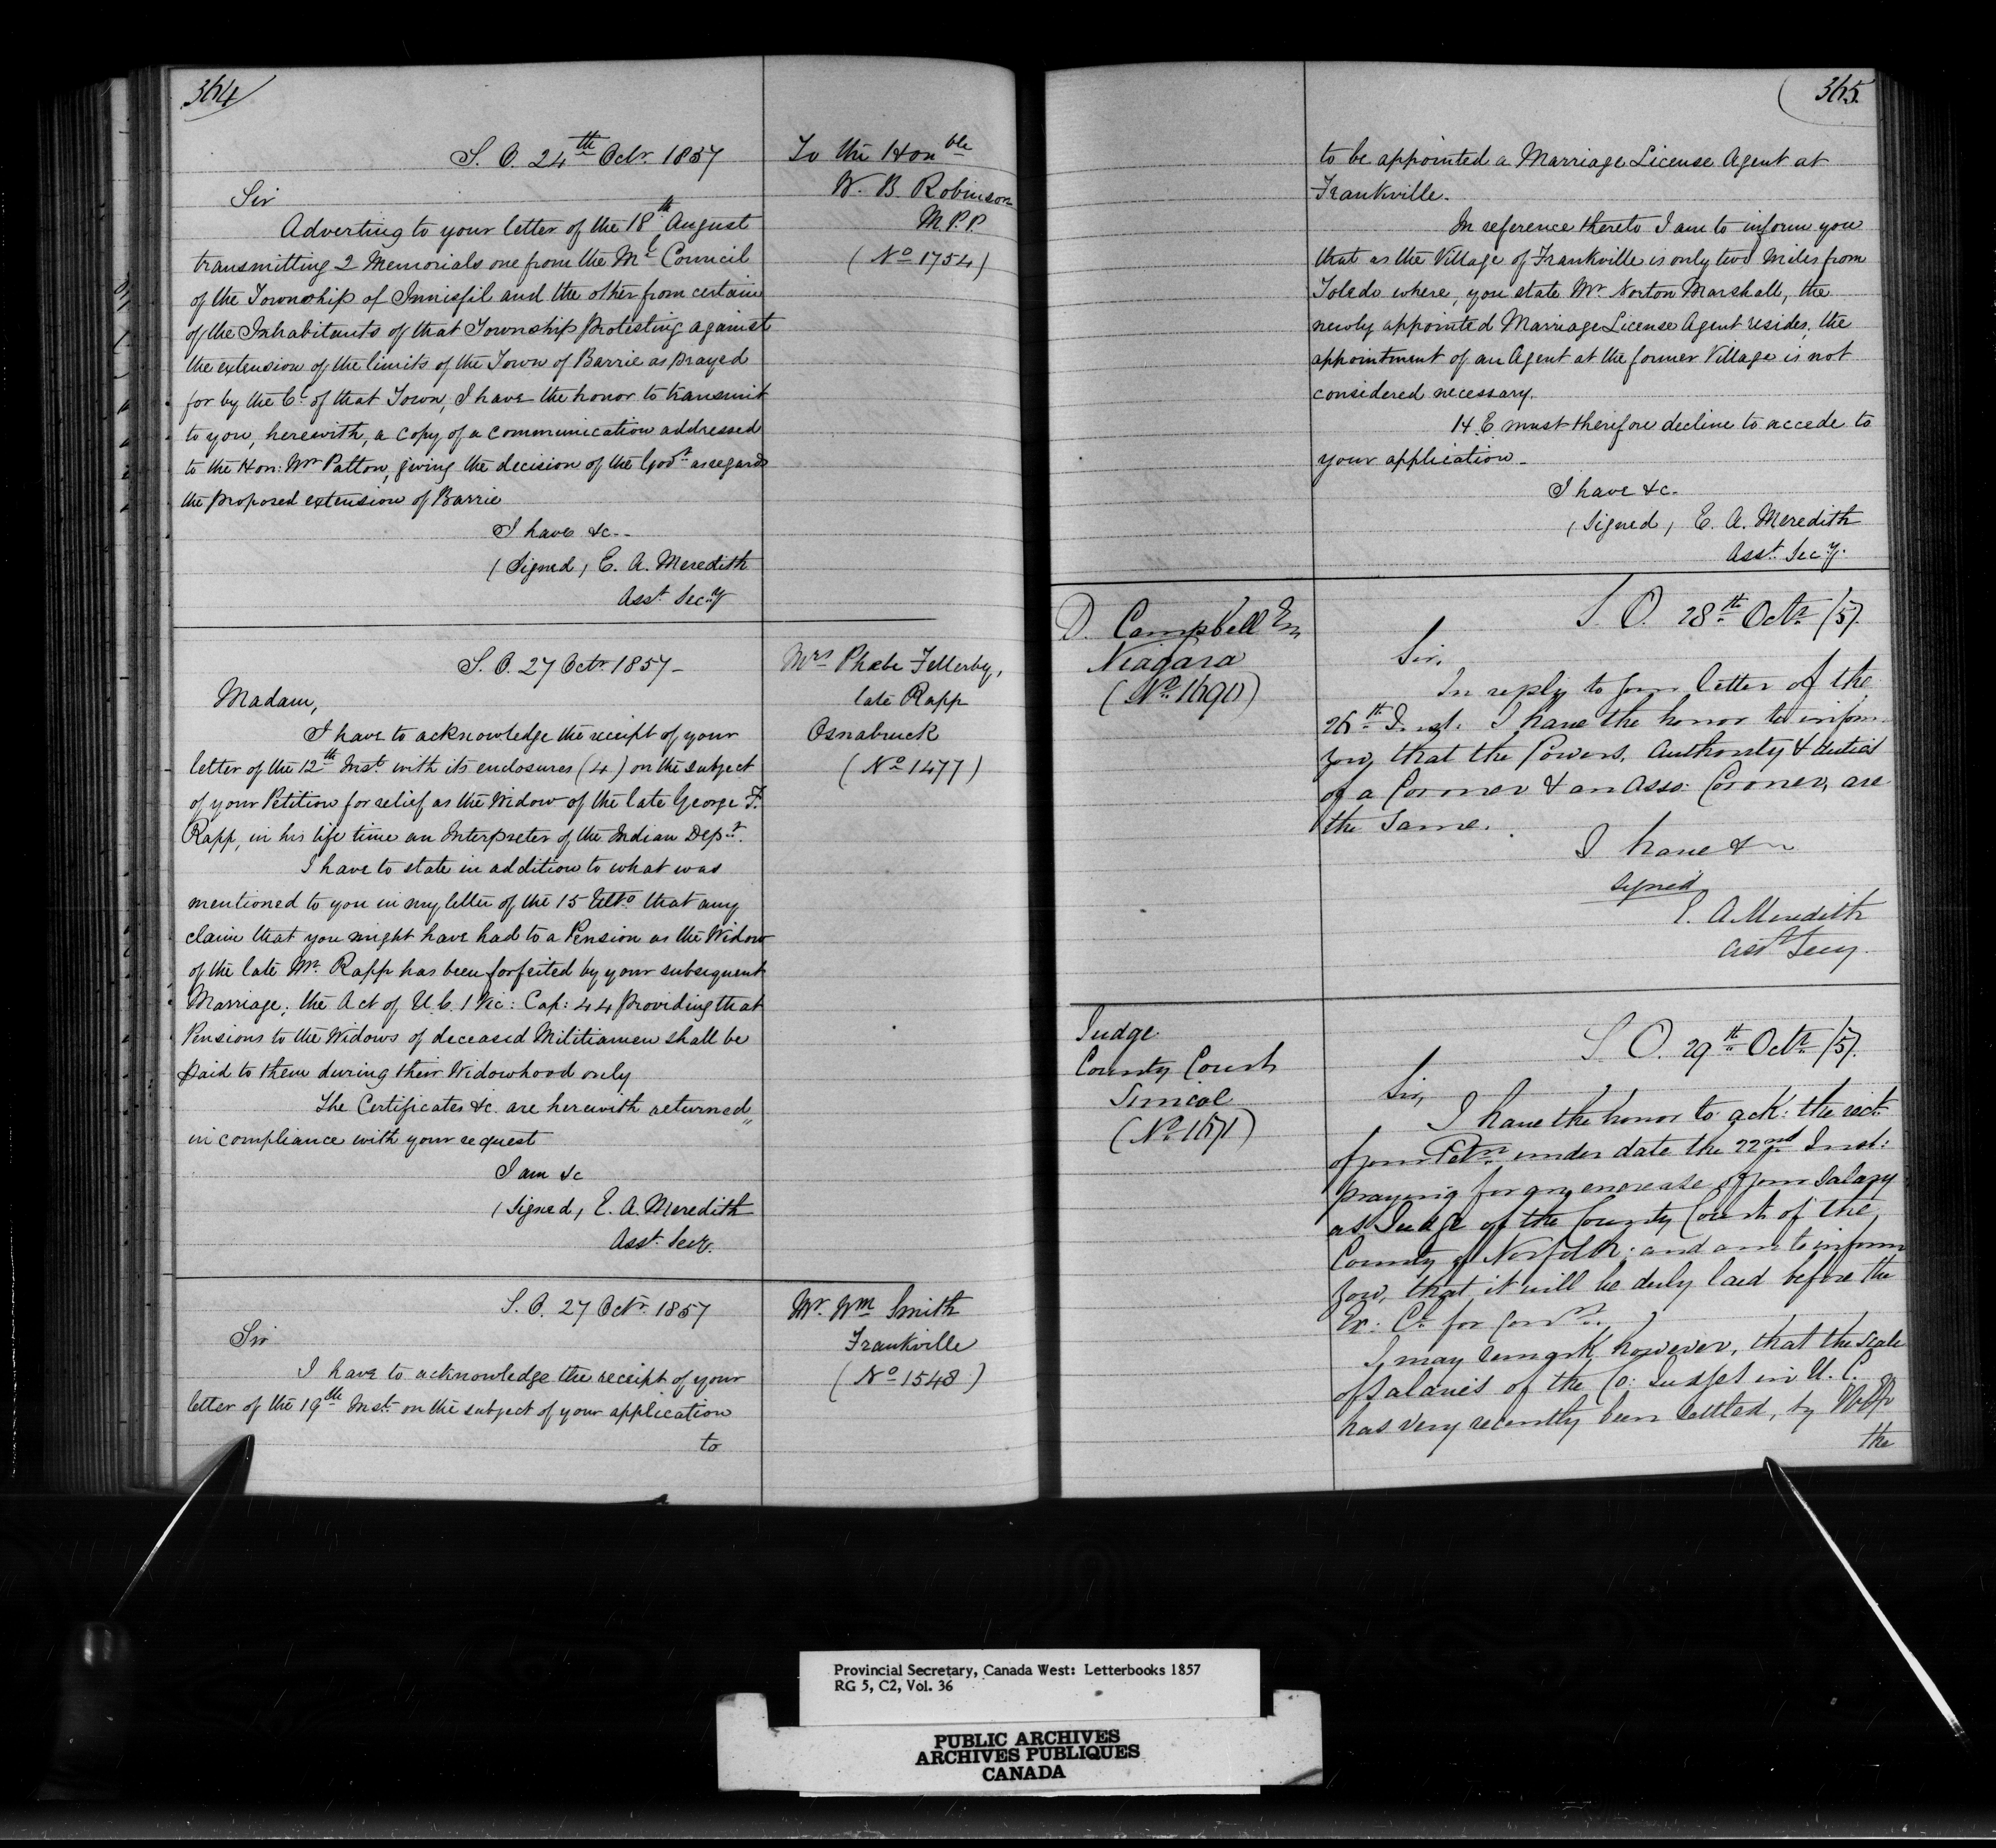 364
S. O. 24th Octr. 1857
Sir
Adverting to your letter of the 18th August
transmitting 2 Memorials one from the Ml. Council
of the Township of Innisfil and the other from certain
of the Inhabitants of that Township protesting against
the extension of the limits of the Town of Barrie as prayed
for by the Cl. of that Town, I have the honor to transmit
to you, herewith, a copy of a communication addressed
to the Hon: Mr Patton, giving the decision of the Govt. as regards
the proposed extension of Barrie
I have &c.
(Signed) E. A. Meredith
Asst. Secy
To the Honble
W. B. Robinson
M.P.P.
(No 1754)
S. O. 27 Octr. 1857
Madam,
I have to acknowledge the receipt of your
letter of the 12th Inst. with its enclosures (4) on the subject
of your Petition for relief as the Widow of the late George F.
Rapp, in his life time an Interpreter of the Indian Dept.
I have to state in addition to what was
mentioned to you in my letter of the 15 Ulto. that any
claim that you might have had to a Pension as the Widow
of the late Mr. Rapp has been forfeited by your subsequent
Marriage; the Act of U. C. 1 Vic: Cap: 44 providing that
Pensions to the Widows of deceased Militiamen shall be
paid to them during their Widowhood only
The Certificates &c. are herewith returned
in compliance with your request
I am &c
(Signed) E. A. Meredith
Asst. Secy.
Mrs Phœbe Fellerby,
late Rapp
Osnabruck
(No 1477)
S. O. 27 Octr. 1857
Sir
I have to acknowledge the receipt of your
letter of the 19th Inst. on the subject of your application
to
Mr. Wm Smith
Frankville
(No 1548)
365
to be appointed a Marriage License Agent at
Frankville.
In reference thereto I am to inform you
that as the Village of Frankville is only two Miles from
Toledo where, you state Mr. Norton Marshall, the
newly appointed Marriage License Agent resides, the
appointment of an Agent at the former Village is not
considered necessary.
H. E. must therefore decline to accede to
your application.
I have &c.
(Signed) E. A. Meredith
Asst. Secy.
D. Campbell Esq
Niagara
(No. 1690)
S. O. 28th Octr. /57.
Sir,
In reply to your letter of the
26th Inst. I have the honor to inform
you, that the Powers, Authority & duties
of a Coroner & an Asso: Coroner, are
the Same.
I have &
signed
E. A. Meredith
Asst Secy.
Judge
County Court
Simcoe
(No. 1671)
S. O. 29th Octr. /57.
Sir,
I have the honor to ack: the rect.
of your Petn. under date the 22nd Inst:
praying for an encrease of your Salary
as Judge of the County Court of the
County of Norfolk; and am to inform
you, that it will be duly laid before the
Ex: Cl. for Conn.
I may remark, however, that the Scale
of Salaries of the Co: Judges in U. C.
has very recently been settled, by
the
Provincial Secretary, Canada West: Letterbooks 1857
RG 5, C2, Vol. 36
PUBLIC ARCHIVES
ARCHIVES PUBLIQUES
CANADA